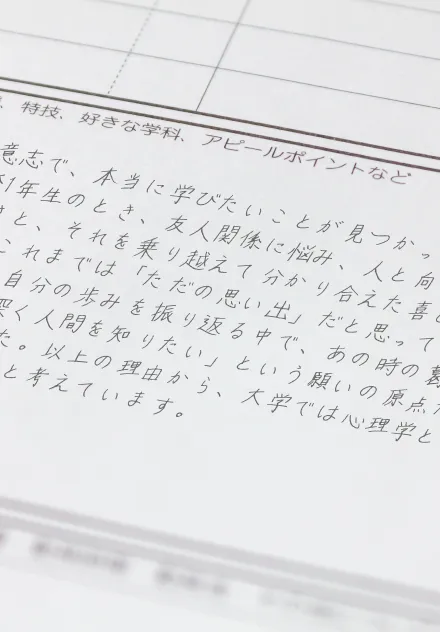 、特技、好きな学科、アピールポイントなど
意志で、本当に学びたいことが見つかっ
1年生のとき、友人関係に悩み、人と向
と、それを乗り越えて分かり合えた喜
これまでは「ただの思い出」だと思って
自分の歩みを振り返る中で、あの時の
深く人間を知りたい」という願いの原点
た。以上の理由から、大学では心理学と
と考えています。